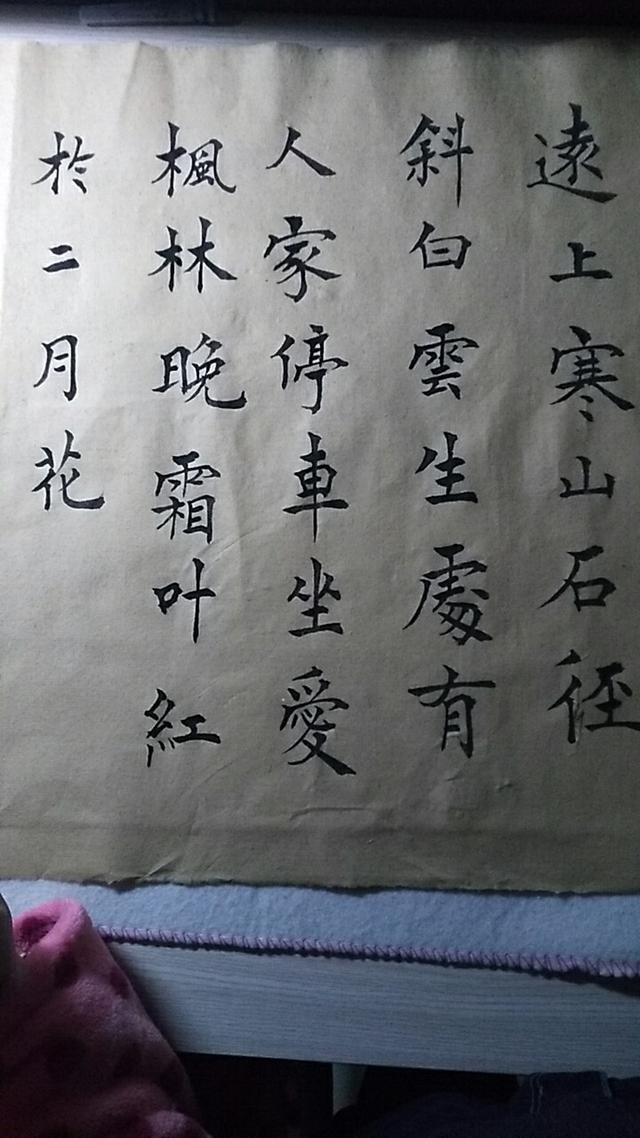 遠上寒山石径
斜白雲生處有
人家停車坐愛
楓林晚霜叶紅
於二月花